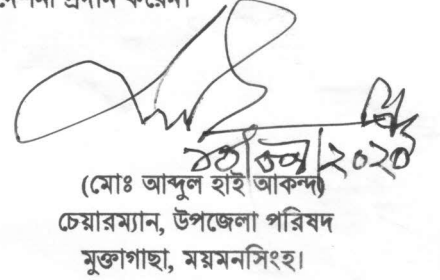 প্রদান করেন।
২০২০
(মোঃ আব্দুল হাই আকন্দ)
চেয়ারম্যান, উপজেলা পরিষদ
মুক্তাগাছা, ময়মনসিংহ।